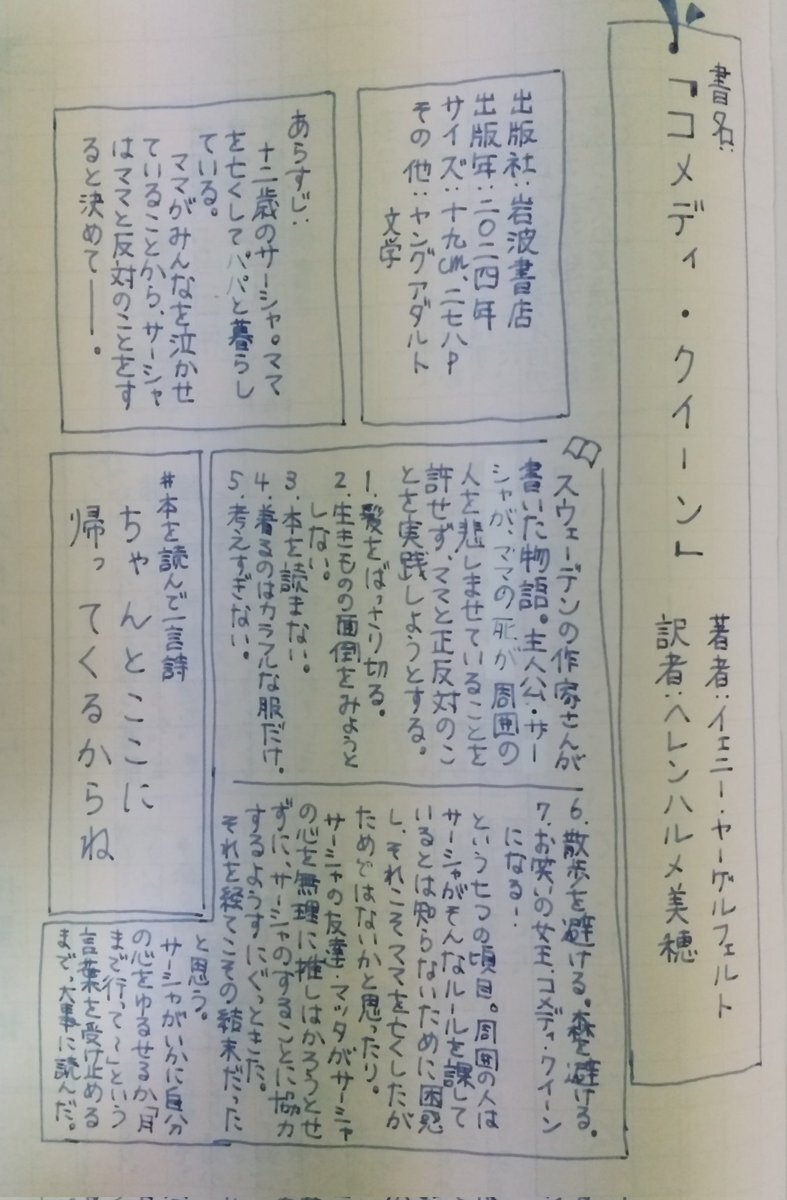 書名:
『コメディ・クイーン』
著者:イェニー・ヤーゲルフェルト
訳者:ヘレンハルメ美穂
出版社:岩波書店
出版年:二〇二四年
サイズ:十九cm、二七八P
その他:ヤングアダルト
文学
あらすじ:
十二歳のサーシャ。ママ
を亡くしてパパと暮らし
ている。
ママがみんなを泣かせ
ていることから、サーシャ
はママと反対のことをす
ると決めて――。
スウェーデンの作家さんが
書いた物語。主人公・サー
シャが、ママの死が周囲の
人を悲しませていることを
許せず、ママと正反対のこ
とを実践しようとする。
1.髪をばっさり切る。
2.生きものの面倒をみようと
しない。
3.本を読まない。
4.着るのはカラフルな服だけ。
5.考えすぎない。
6.散歩を避ける。森を避ける。
7.お笑いの女王、コメディ・クイーン
になる!
という七つの項目。周囲の人は
サーシャがそんなルールを課して
いるとは知らないために困惑
し、それこそママを亡くしたが
ためではないかと思ったり。
サーシャの友達・マッタがサーシャ
の心を無理に推しはかろうとせ
ずに、サーシャのすることに協力
するようすにぐっときた。
それを経てこその結末だった
と思う。
サーシャがいかに自分
の心をゆるせるか「月
まで行って〜」という
言葉を受け止める
まで、大事に読んだ。
#本を読んで一言詩
ちゃんとここに
帰ってくるからね